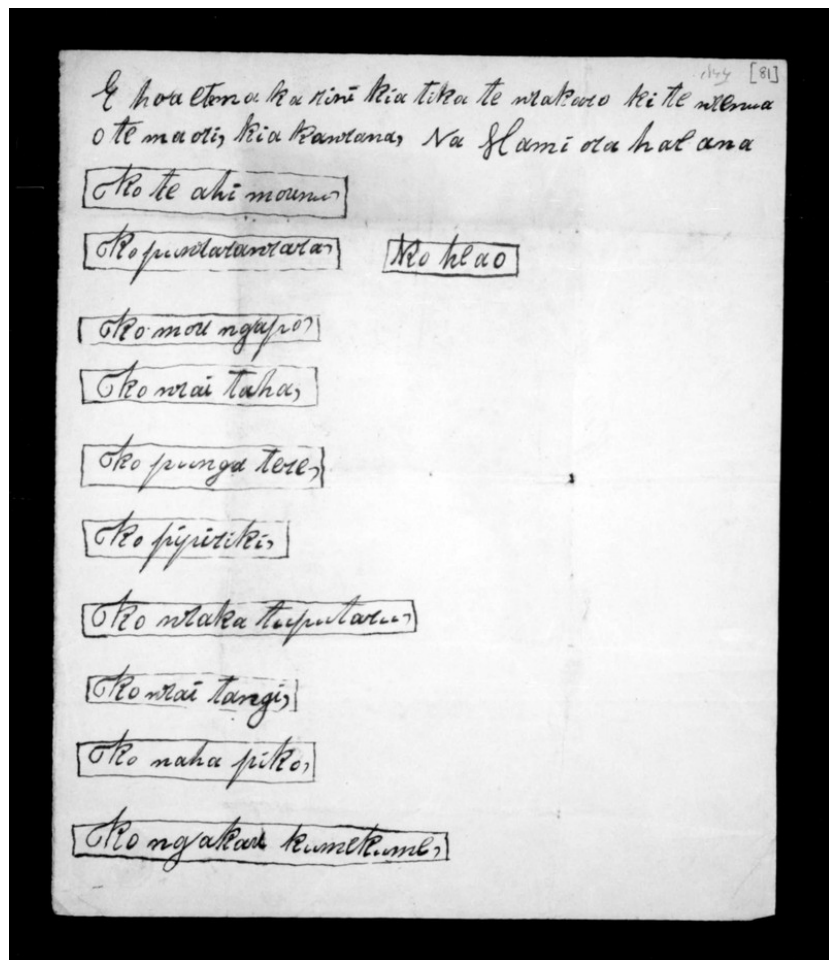 [81]
E hoa etema ka rini kia tika te wakaaro ki te wenua
o te maori, kia kawana, Na Hami ora
Ko te ahi
Ko puwarawara,
Ko heao
Ko mou ngapo,
Ko wai taha,
Ko punga tere,
Ko pipiriki,
Ko waka tuputaru,
Ko wai tangi,
Ko naha piko,
Ko ngakau kumekume,